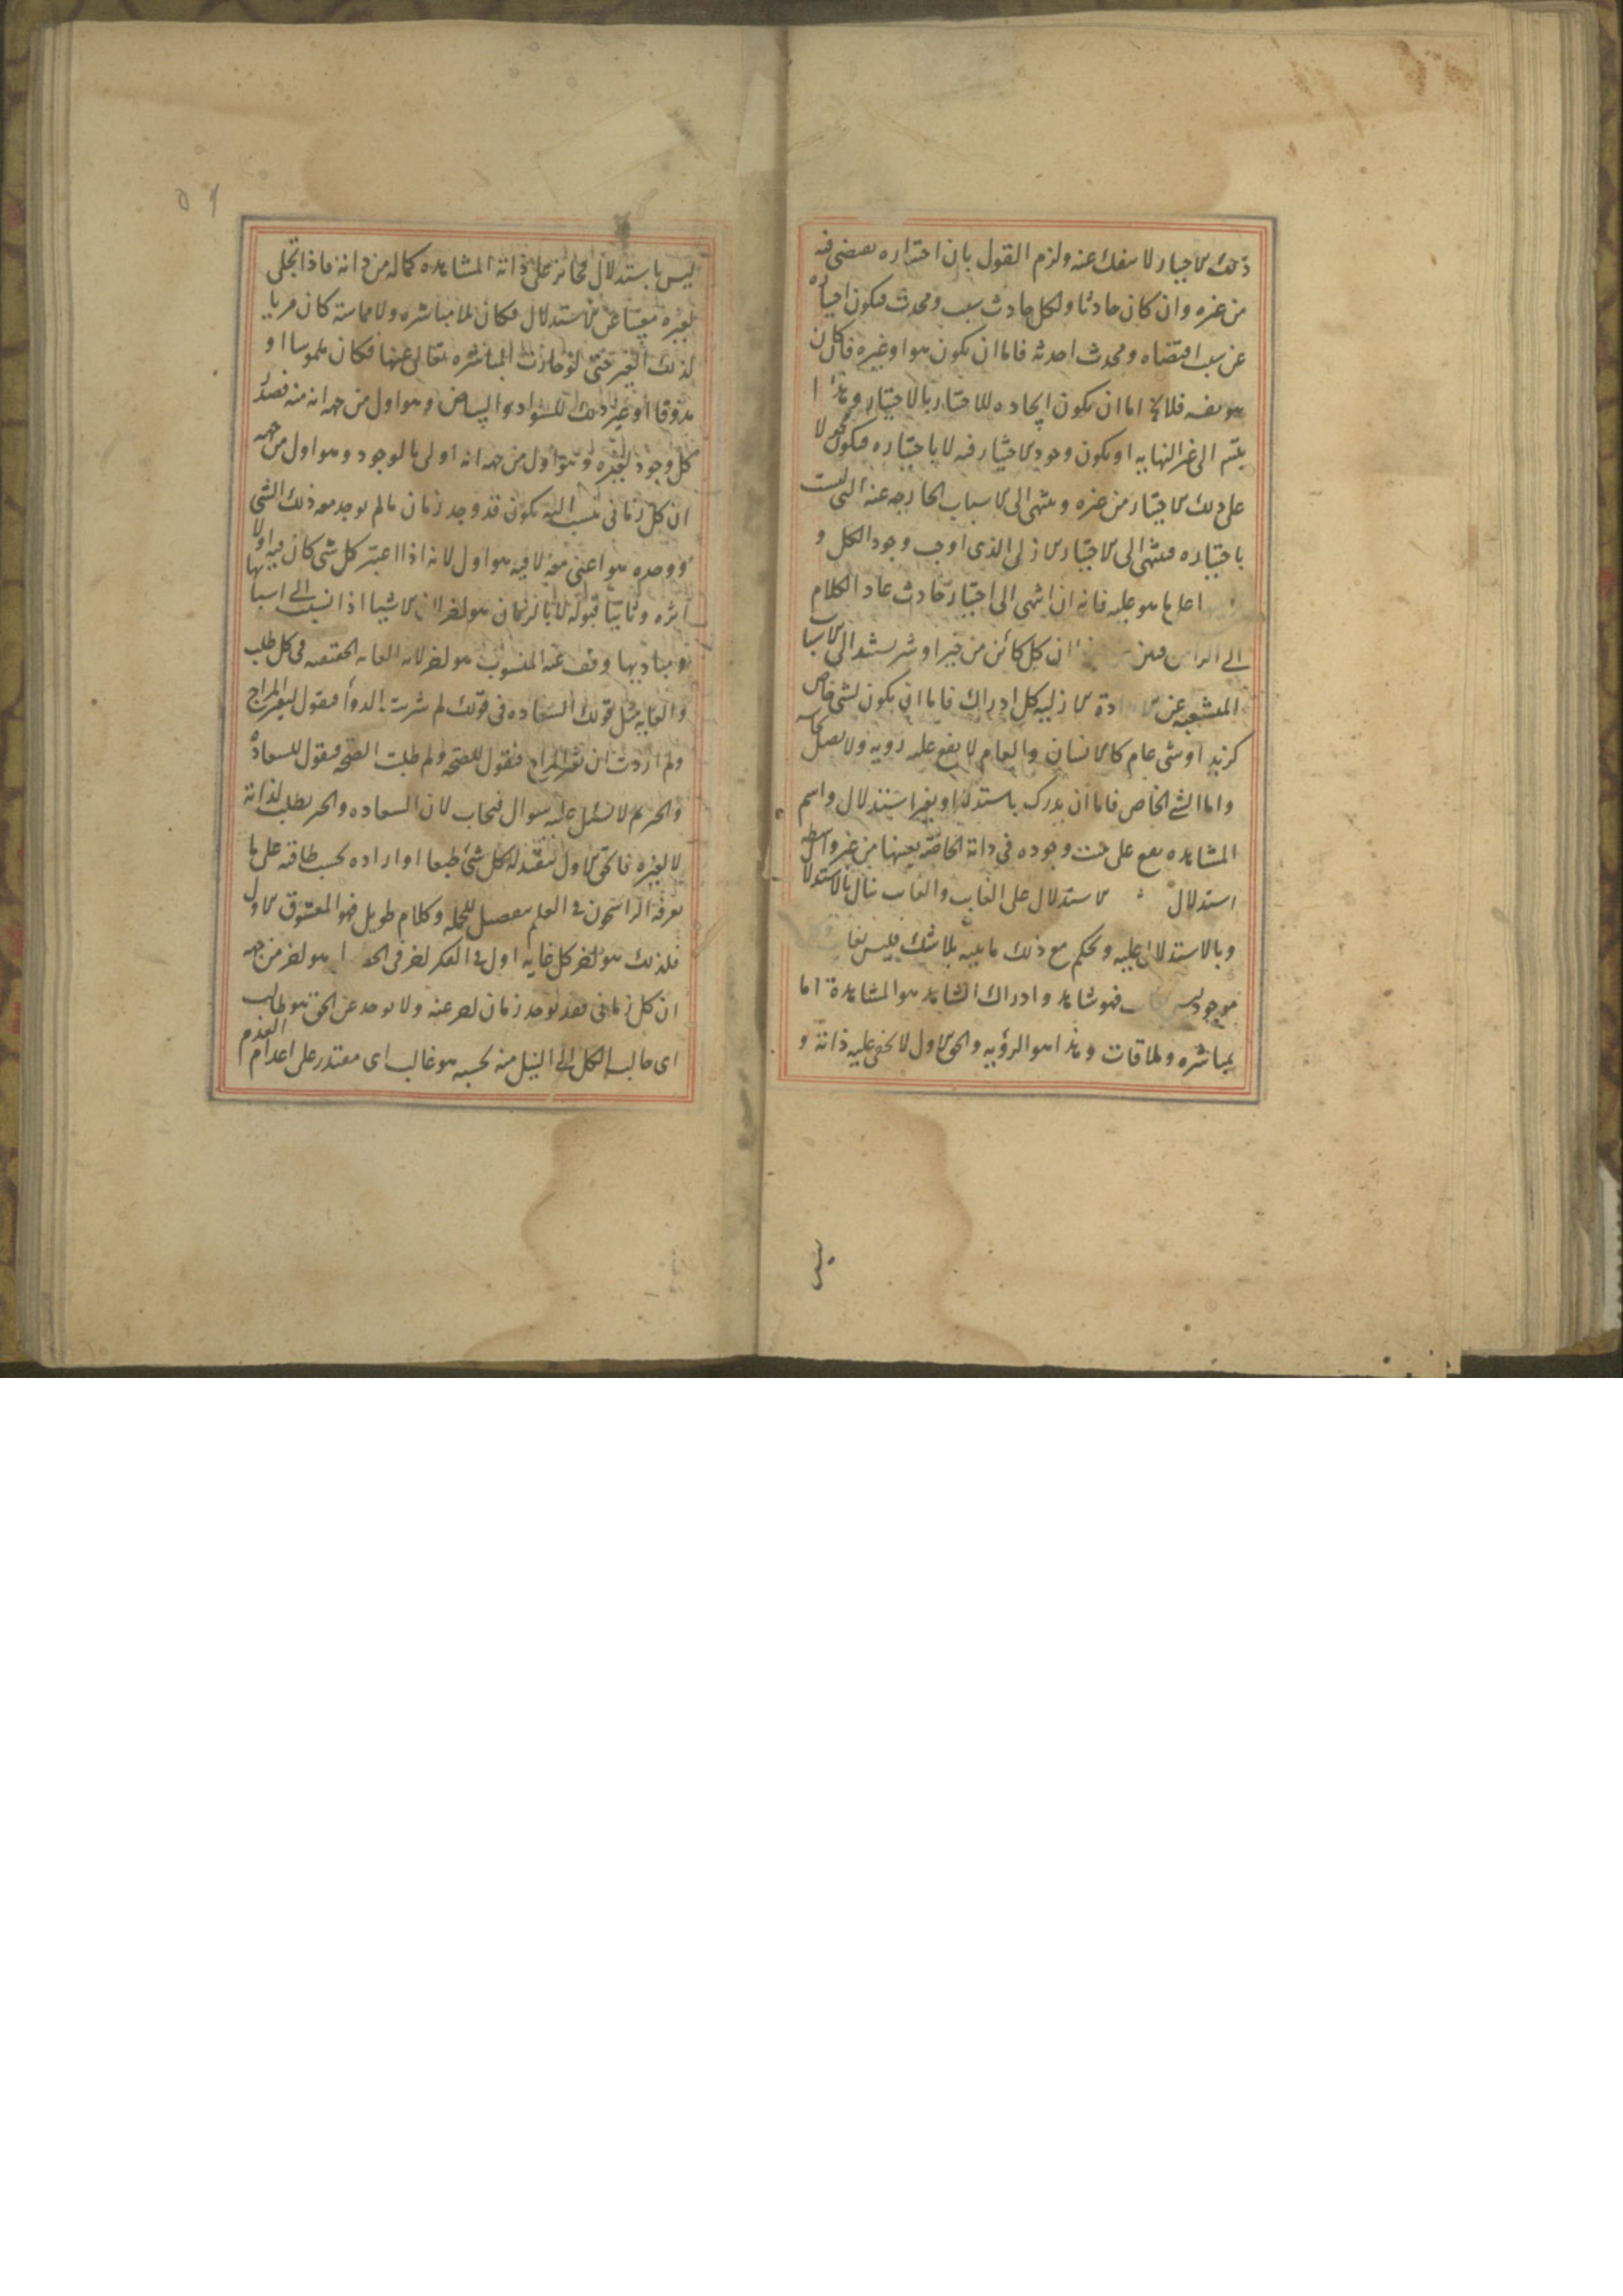 ذلك الاختيار لا ينفك عنه ولزم القول بان اختياره يقتضى فيه
من غيره وان كان حادثا ولكل حادث سبب ومحدث فيكون اختياره
عن سبب اقتضاه ومحدث احدثه فاما ان يكون هو او غيره فان كان
هو نفسه فلا يخ اما ان يكون ايجاده للاختيار بالاختيار وهذا
يتسم الى غير النهايه او يكون وجود الاختيار فيه لا باختياره فيكون محمولا
على ذلك الاختيار من غيره وينتهى الى الاسباب الخارجه عنه التى ليست
باختياره فينتهى الى الاختيار الازلى الذى اوجب وجود الكل و
على ما هو عليه فانه ان انتهى الى اختيار حادث عاد الكلام
الى الراس فبين ان كل كائن من خير او شر يستند الى الاسباب
المنشعبه عن الارادة الازليه كل ادراك فاما ان يكون لشى خاص
كزيد او شى عام كالانسان والعام لا يقع عليه رويه ولا يصل بحاسه
واما الشى الخاص فاما ان يدرك باستدلال او بغير استدلال واسم
المشاهده يقع على ما ثبت وجوده فى ذاته الخاصه بعينها من غير واسطه
استدلال الاستدلال على الغايب والغايب ينال بالاستدلال
وبالاستدلال عليه ويحكم مع ذلك ما نيته بلا شك فليس بغايب
موجود ليس بغايب فهو شاهد وادراك الشاهد هو المشاهدة اما
بمباشره وملاقات وهذا هو الرؤيه والحق الاول لا يخفى عليه ذاته و
ليس
٥٩
ليس باستدلال فجائز على ذاته المشاهده كماله من ذاته فاذا تجلى
لغيره مغنيا عن الاستدلال فكان بلا مباشره ولا مماسه كان مرييا
لذلك الغير حتى لو جازت المباشره تعالى عنها فكان ملموسا او
مذوقا او غير ذلك للسواد والبياض وهو اول من جهه انه منه يصدر
كل وجود لغيره وهو اول من جهه انه اولى بالوجود وهو اول من جهه
ان كل زمانى ينسب اليه يكون قد وجد زمان ما لم يوجد معه ذلك الشى
ووجده هو اعنى معه لا فيه هو اول لانه اذا اعتبر كل شى كان فيه اولا
اثره وثانيا قبوله لا بالزمان هو اخر لان الاشيا اذا نسبت الى اسبابها
ومباديها وقف عنه المنسوب هو اخر لانه الغايه الحقيقيه فى كل طلب
والغايه مثل قولك السعاده فى قولك لم شربت الدوا فيقول لتغير المزاج
ولم اردت ان تغير المزاج فيقول للصحه ولم طلبت الصحه فيقول للسعاده
والخير ثم لا يسئل عليه سوال فيجاب لان السعاده والخير يطلب لذاته
لا لغيره فالحق الاول يتقبله كل شئ طبعا او اراده بحسب طاقته على ما
يعرفه الراسخون فى العلم بتفصيل الجمله وكلام طويل فهو المعشوق الاول
فلذلك هو اخر كل غايه اول فى الفكر اخر فى الحصول هو اخر من جهه
ان كل زمانى فقد يوجد زمان يتاخر عنه ولا يوجد عن الحق هو طالب
اى طالب الكل الى النيل منه بحسبه هو غالب اى مقتدر على اعدام العدم